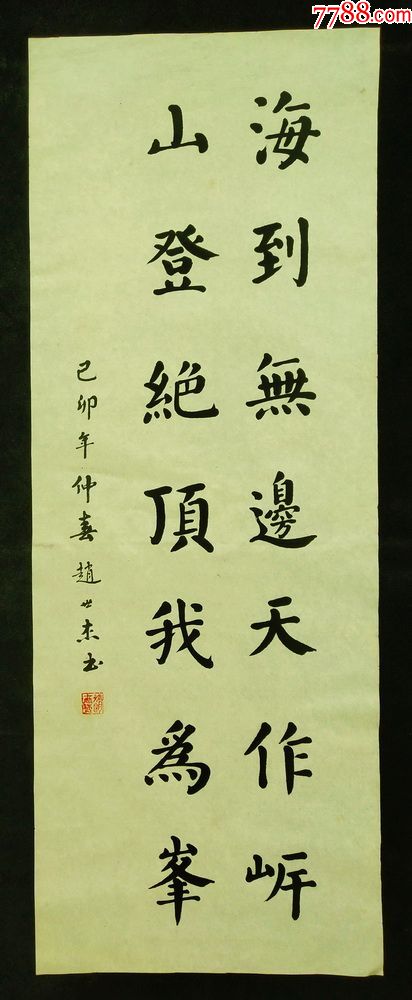 7788.com
海到無邊天作岸
山登絕頂我為峯
己卯年仲春趙世杰书